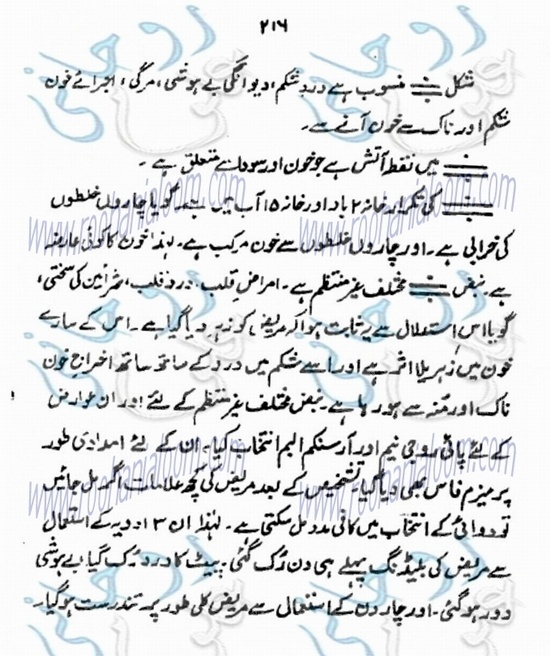 ۲۱۶
شکل منسوب ہے دردِ شکم، دیوانگی بے ہوشی، مرگی، اجرائے خون
شکم اور ناک سے خون آنے سے۔
میں نقطہ آتش ہے جو خون اور سودا سے متعلق ہے۔
کی تکرار خانہ ۲ باد اور خانہ ۱۵ آب میں ہے گویا چاروں خلطوں
کی خرابی ہے۔ اور چاروں خلطوں سے خون مرکب ہے۔ لہٰذا خون کا کوئی عارضہ
ہے۔ نبض مختلف غیر منتظم ہے۔ امراضِ قلب، دردِ قلب، شرائین کی سختی،
گویا اس استدلال سے یہ ثابت ہوا کہ مریض کو زہر دیا گیا ہے۔ اس کے سارے
خون میں زہریلا اثر ہے اور اسے شکم میں درد کے ساتھ ساتھ اخراجِ خون
ناک اور منہ سے ہو رہا ہے۔ نبض مختلف غیر منتظم کے لئے اور ان عوارض
کے لئے پائی روجی نیم اور آرسنکم البم انتخاب کیا۔ ان کے لئے امدادی طور
پر میزم فاس بھی دیا گیا۔ تشخیص کے بعد مریض کی کچھ علامات اگر مل جائیں
تو دوائی کے انتخاب میں کافی مدد مل سکتی ہے۔ لہٰذا ان ۳ ادویہ کے استعمال
سے مریض کی بلیڈنگ پہلے ہی دن رُک گئی۔ پیٹ کا درد رُک گیا بے ہوشی
دور ہو گئی۔ اور چار دن کے استعمال سے مریض کلی طور پر تندرست ہو گیا۔
www.roohanialoom.com
www.roohanialoom.com
www.roohanialoom.com
www.roohanialoom.com